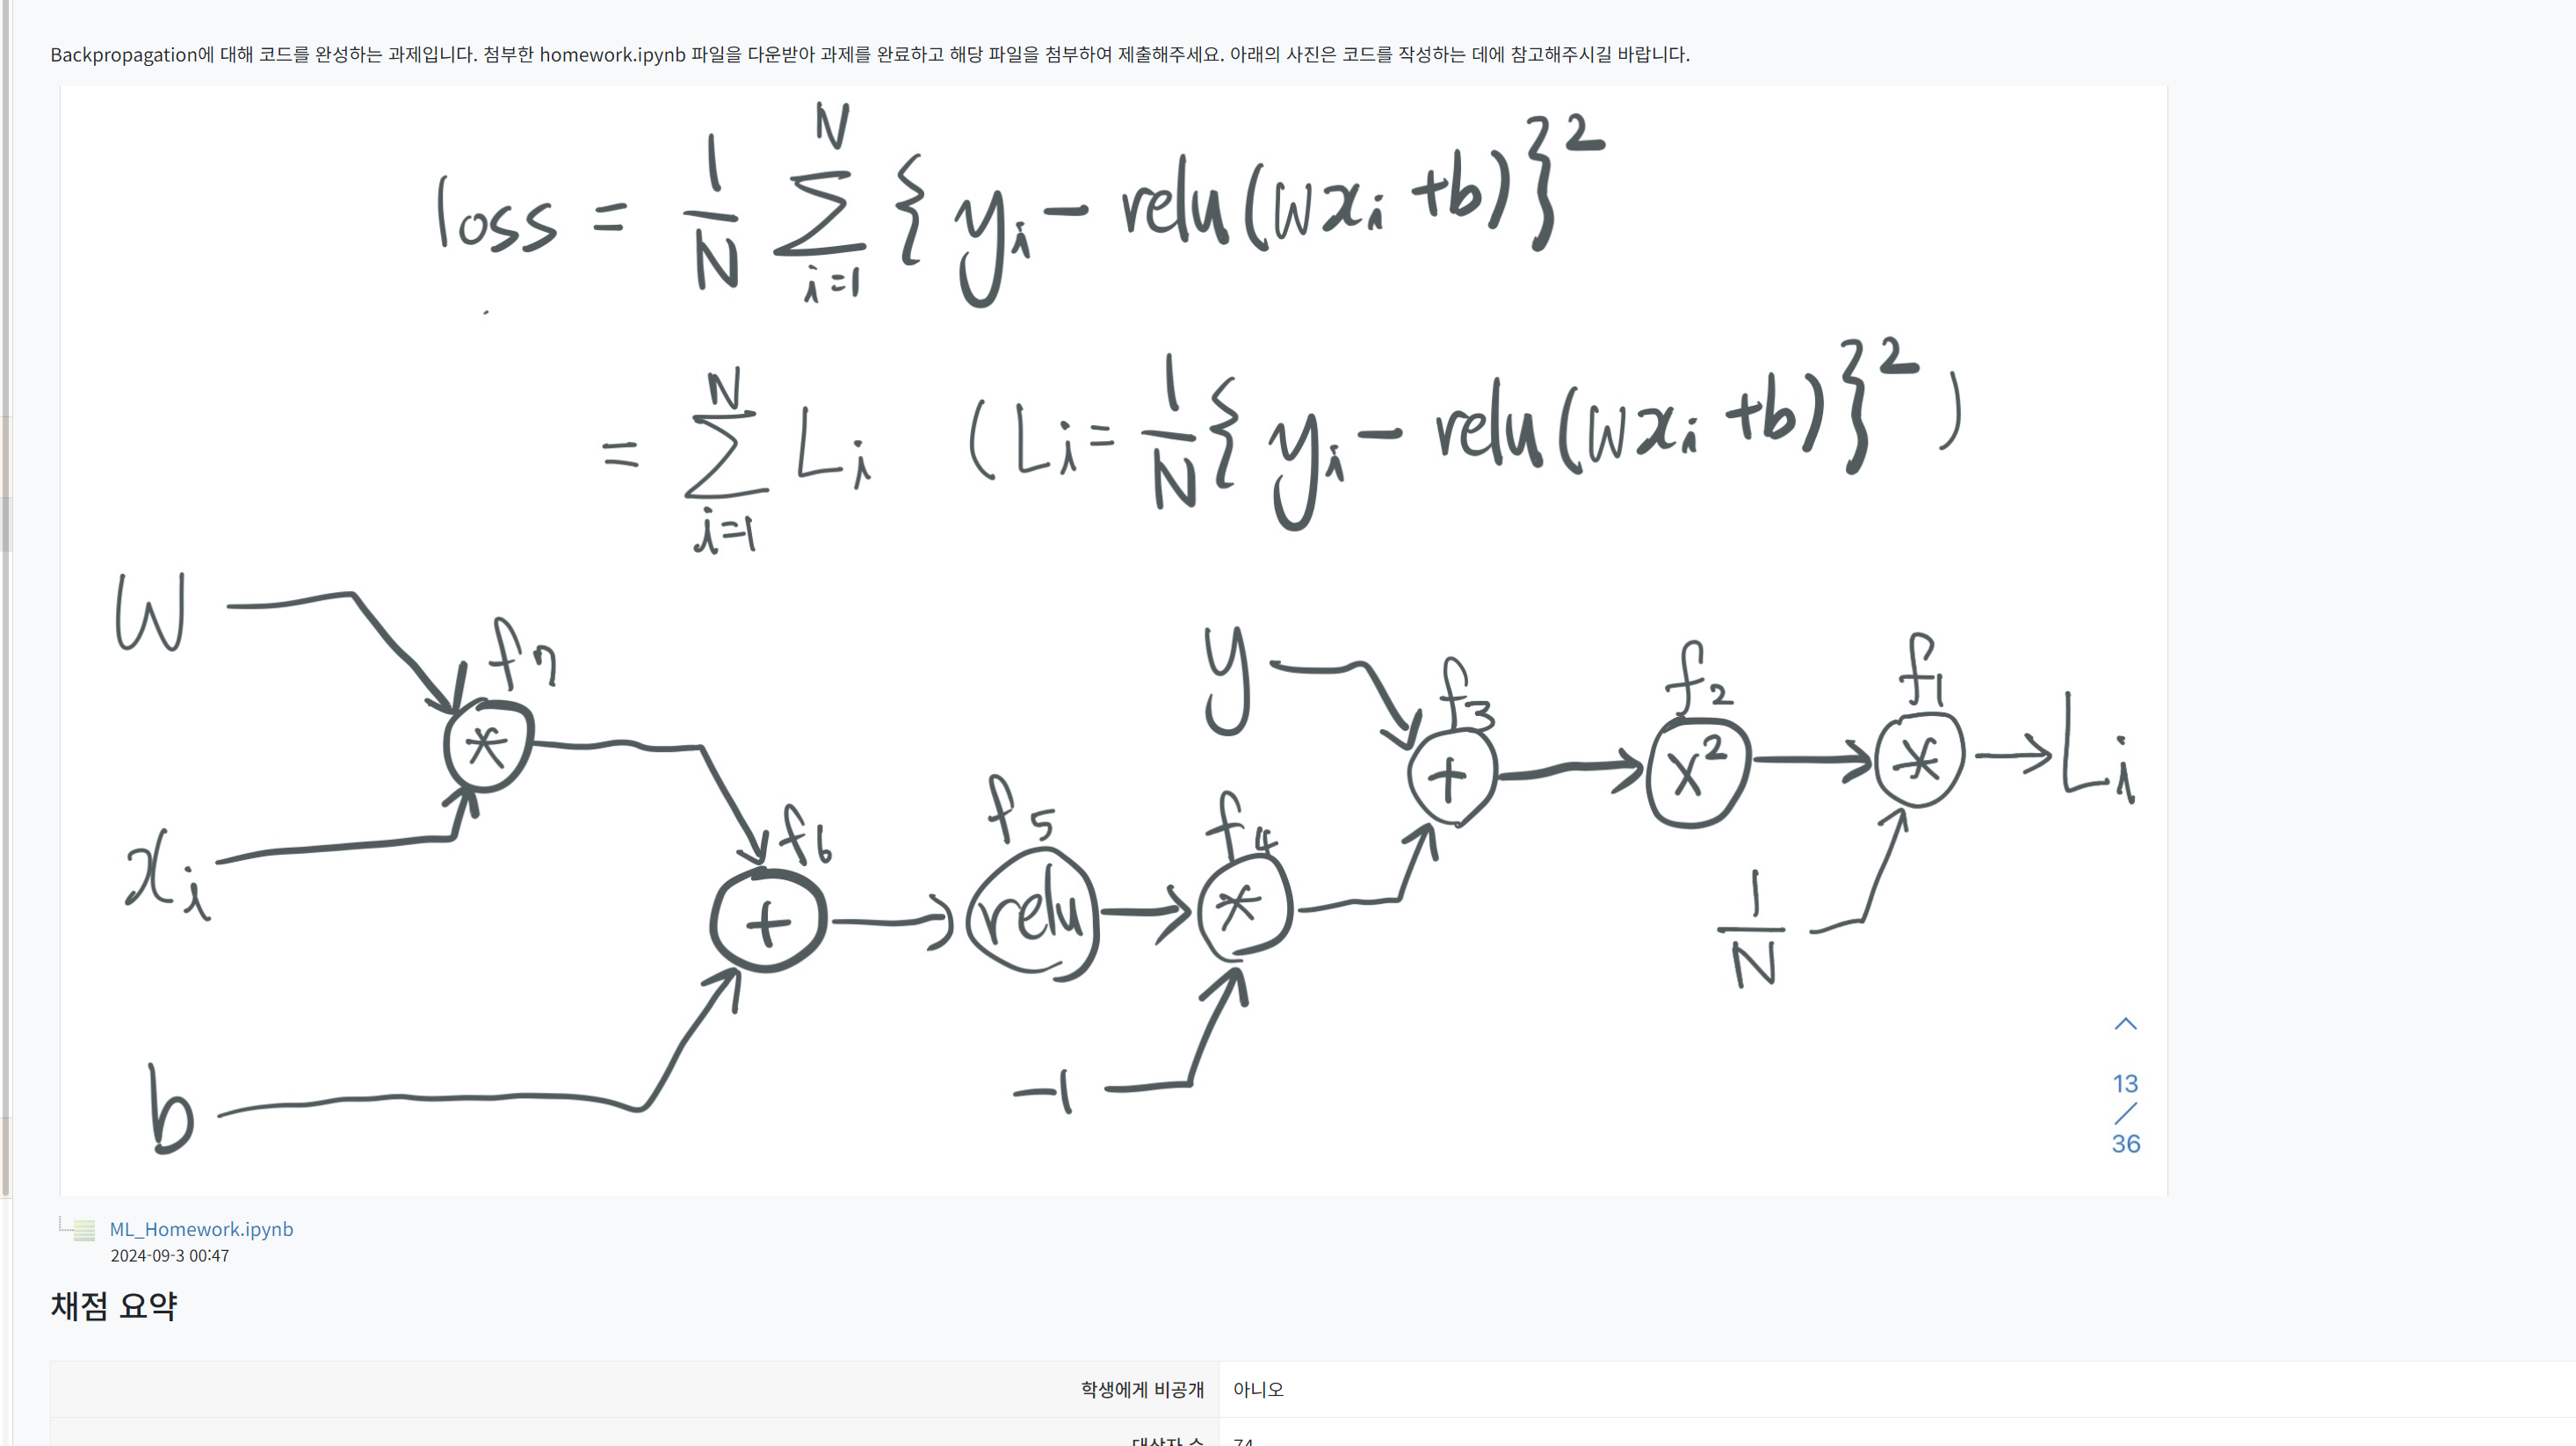 Backpropagation에 대해 코드를 완성하는 과제입니다. 첨부한 homework.ipynb 파일을 다운받아 과제를 완료하고 해당 파일을 첨부하여 제출해주세요. 아래의 사진은 코드를 작성하는 데에 참고해주시길 바랍니다.
loss = 1/N N∑i=1 { yi - relu(wxi +b)}²
= N∑i=1 Li (Li= 1/N { yi - relu(wxi +b)}²)
W
f7
*
xi
f6
+
b
f5
relu
f4
*
-1
y
f3
+
f2
x²
f1
*
Li
1/N
13
/
36
ML_Homework.ipynb
2024-09-3 00:47
채점 요약
학생에게 비공개 아니오
대상자 수 74